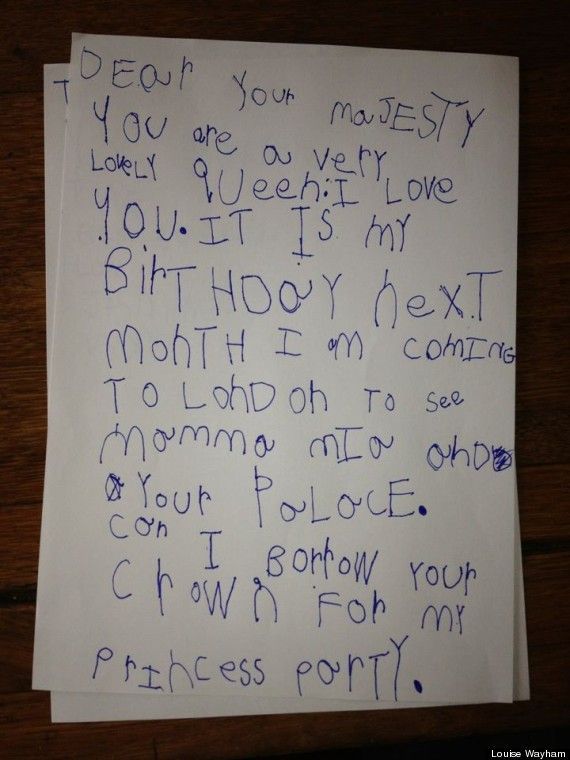 DEar Your maJESTY
You are a very
LoveLY QUeen: I Love
You. IT Is my
BirTHDaY nexT
monTH I am comING
To LonDon To see
mamma mIa anD
Your PaLacE.
can I Borrow Your
crown For my
PrIncess ParTY.
T
Louise Wayham